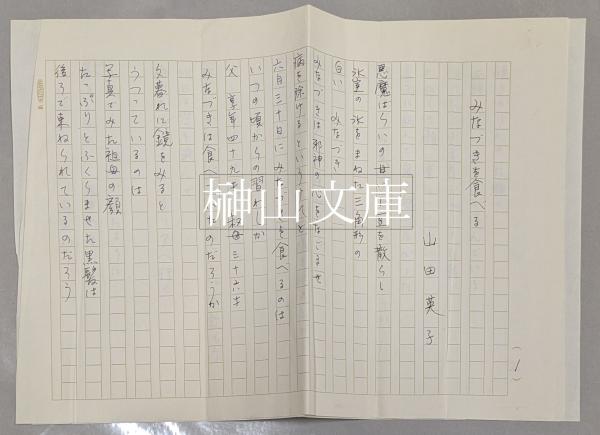 (1)
みなづきを食べる
山田英子
悪魔はらいの 豆を散らし
氷室の氷をまねた三角形の
白い みなづき
みなづきは 邪神の心をなごませ
病を除けるという けれど
六月三十日に みなづきを食べるのは
いつの頃からの習わしか
父 享年四十九才 祖母 三十六才
みなづきは食べ たのだろうか
夕暮れに鏡をみると
うつっているのは
写真でみた祖母の顔
たっぷりとふくらませた黒髪は
後ろで束ねられているのだろう
榊山文庫